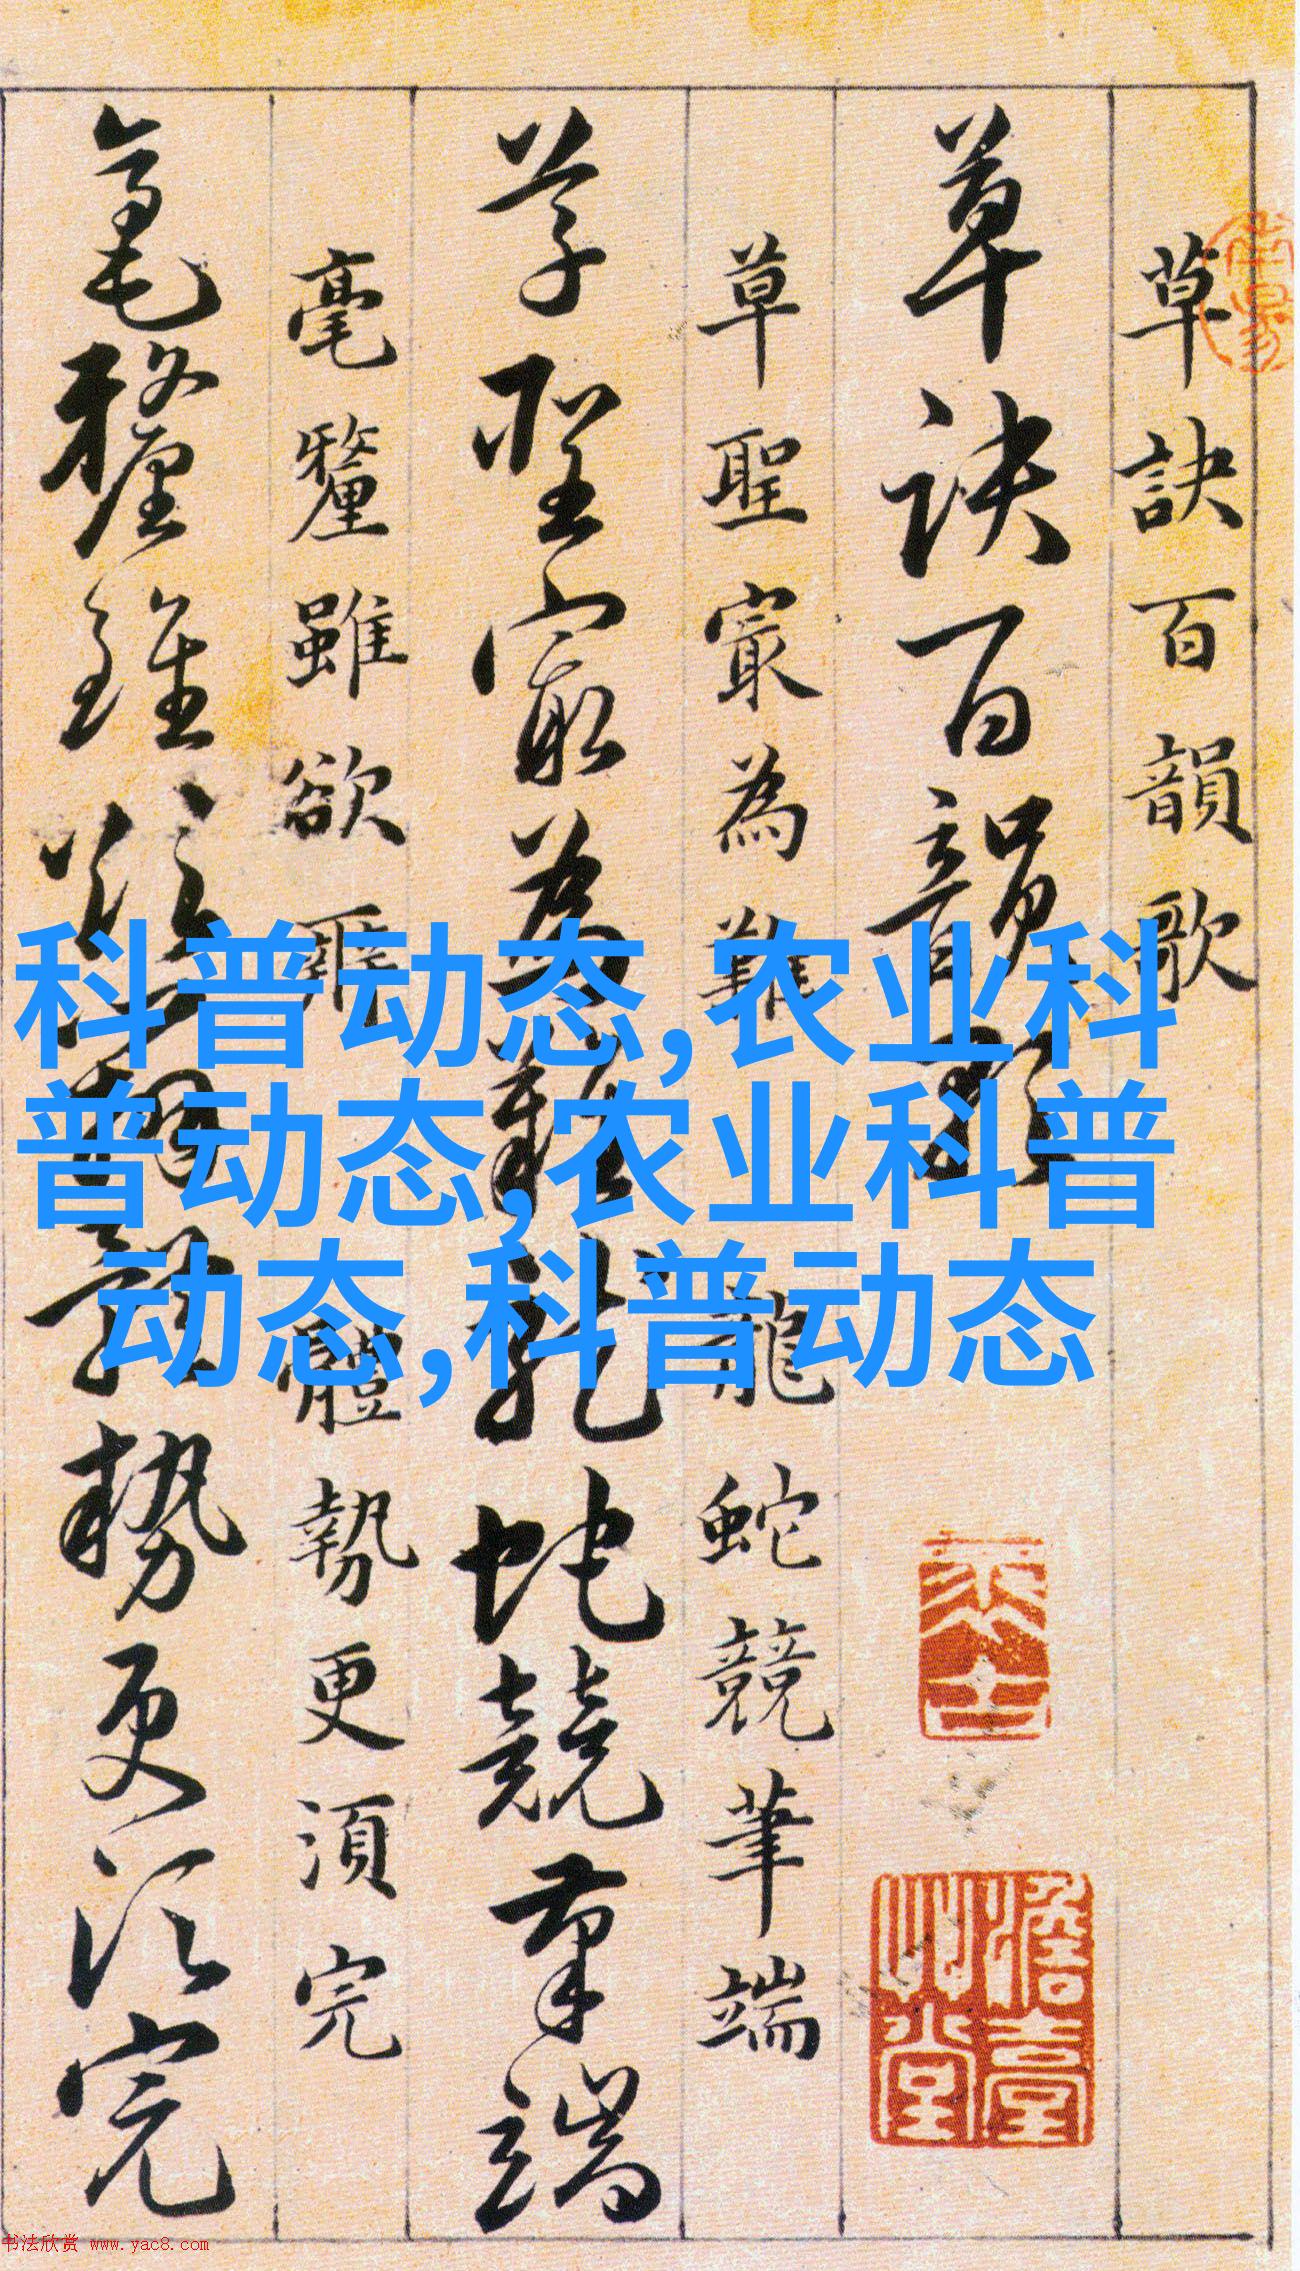 草訣百韻歌
草訣百韻歌
草聖㝡為難 龍蛇競筆端
草聖㝡為難龍蛇競筆端
毫釐雖欲辨 體勢更湏完
毫釐雖欲辨體勢更湏完
科普动态,农业科
普动态,农业科普
动态,科普动态
书法欣赏 www.yac8.com